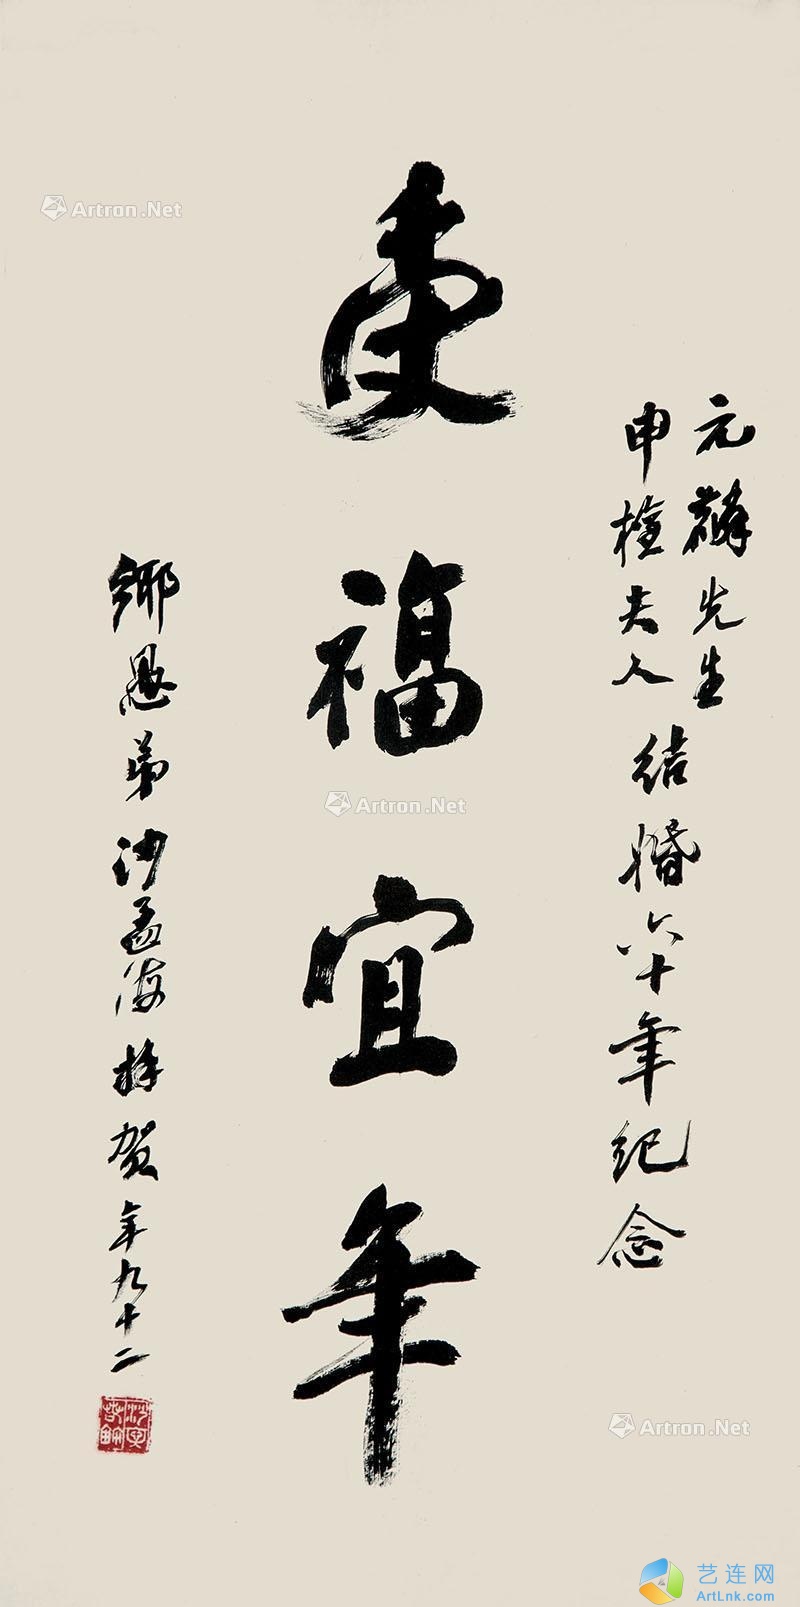 元先生
申夫人
結婚六十年紀念
福宜年
鄉愚弟沙孟海拜賀年九十二
Artron.Net
Artron.Net
Artron.Net
艺连网
ArtLnk.Com